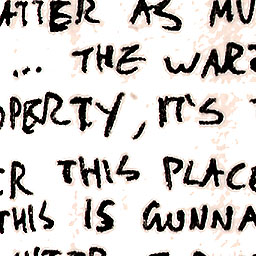 ATTER AS MU
... THE WAR
OPERTY, IT'S
ER THIS PLACE
THIS IS GUNNA